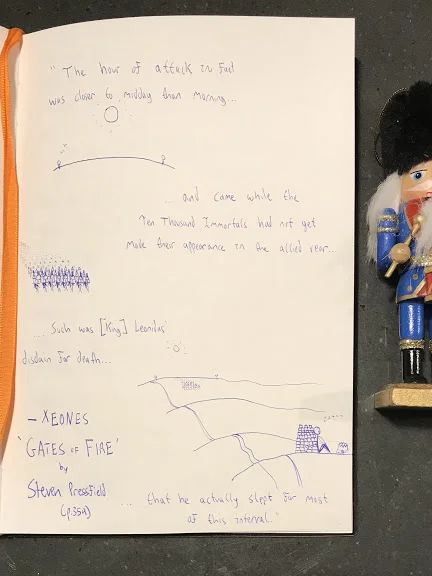 "The hour of attack in fact
was closer to midday than morning...
... and came while the
Ten Thousand Immortals had not yet
made their appearance in the allied rear...
... Such was [King] Leonidas'
disdain for death...
— XEONES
'GATES OF FIRE'
by
Steven Pressfield
(p.354)
... that he actually slept for most
of this interval."